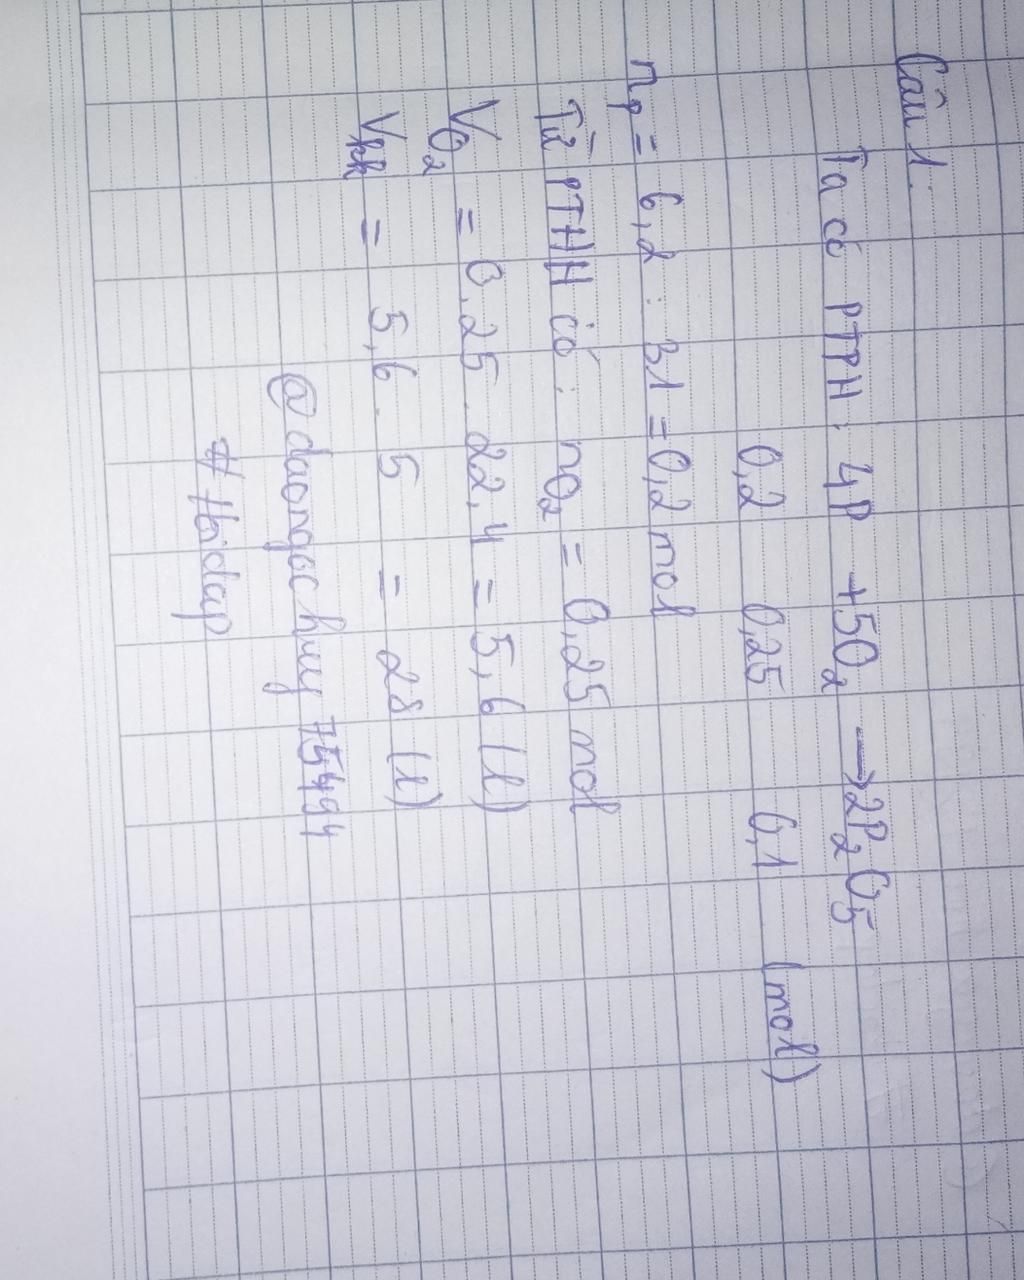 Câu 1:
Ta có PTPH: 4P + 5O₂ → 2P₂O₅
0,2 0,25 0,1 (mol)
nₚ = 6,2 : 31 = 0,2 mol
Từ PTHH có: nO₂ = 0,25 mol
VO₂ = 0,25 . 22,4 = 5,6 (l)
Vkk = 5,6 . 5 = 28 (l)
@daongochuy75494
# Hoidap